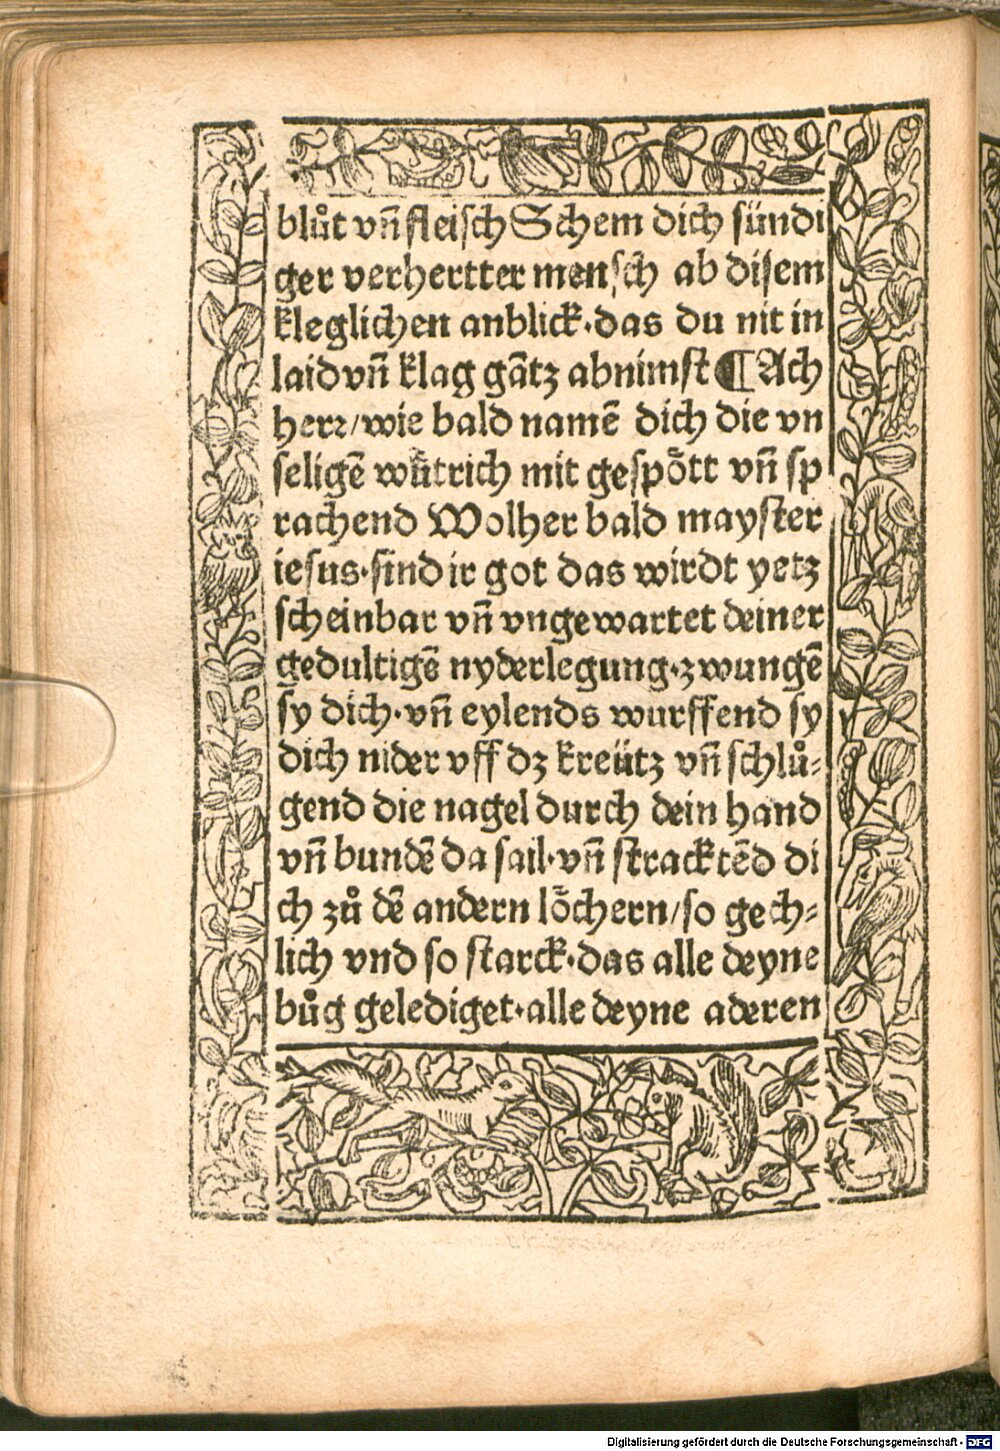 blůt vñ fleisch Schem dich sündi
ger verhertter mensch ab disem
kleglichen anblick·das du nit in
laid vñ klag gãtz abnimst ¶ Ach
herꝛ/wie bald namẽ dich die vn
seligẽ wütrich mit gespött vñ sp
rachend Wolher bald mayster
iesus·sind ir got das wirdt yetz
scheinbar vñ vngewartet deiner
gedultigẽ nyderlegung·zwungẽ
sy dich·vñ eylends wurffend sy
dich nider vff dz kreütz vñ schlů⸗
gend die nagel durch dein hand
vñ bundẽ da sail·vñ stracktẽd di
ch zů dẽ andern löchern/so gech⸗
lich vnd so starck·das alle deyne
bůg gelediget·alle deyne aderen
Digitalisierung gefördert durch die Deutsche Forschungsgemeinschaft - DFG